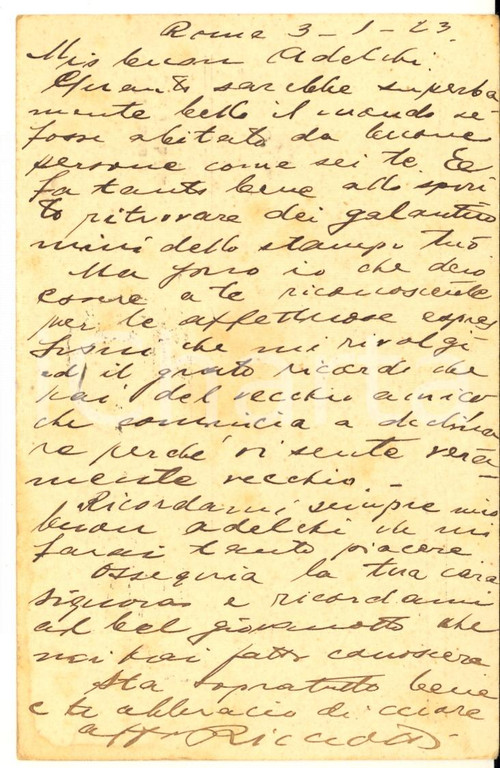 Roma 3-1-23
Mio buon Adelchi.
Quanto sarebbe superba
mente bello il mondo se
fosse abitato da buone
persone come sei te. Ee
fa tanto bene allo spiri
to ritrovare dei galantuo
mini dello stampo tuo
Ma sono io che devo
essere a te riconoscente
per le affettuose espres
sioni che mi rivolgi
ed il grato ricordo che
hai del vecchio amico
che comincia a declina
re perché si sente vera-
mente vecchio -
Ricordami sempre mio
buon Adelchi che mi
farai tanto piacere
Ossequia la tua cara
signora e ricordami
al bel giovanotto che
mi hai fatto conoscere
Sta sopratutto bene
e ti abbraccio di cuore
affmo Ricciotti